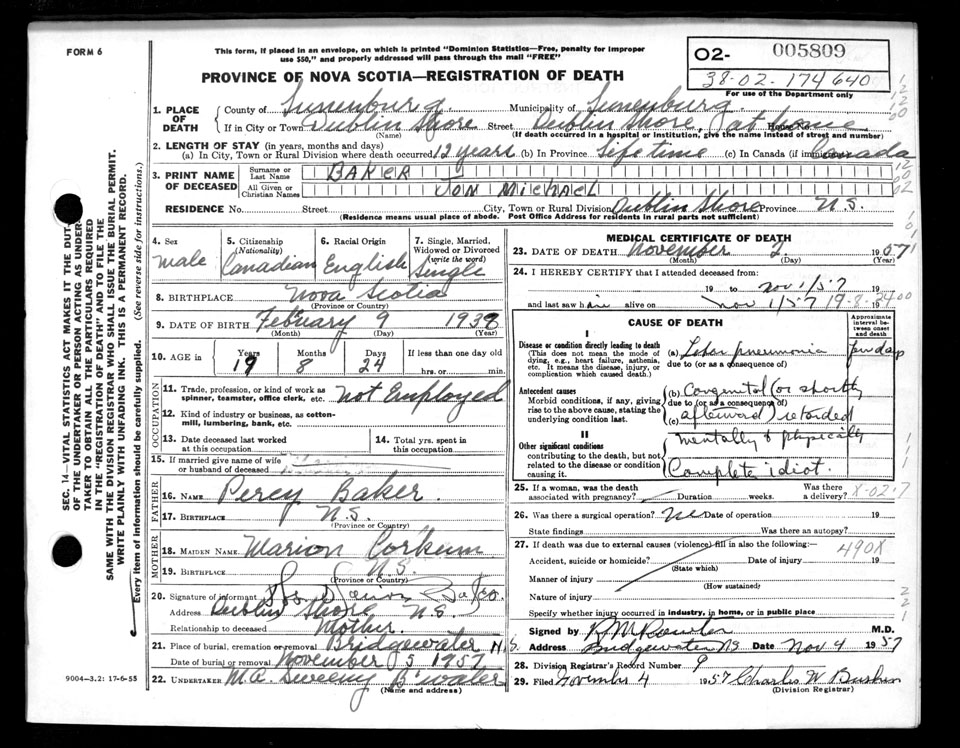 FORM 6
This form, if placed in an envelope, on which is printed "Dominion Statistics—Free, penalty for improper
use $50," and properly addressed will pass through the mail "FREE"
02- 005809
38-02-174640
For use of the Department only
PROVINCE OF NOVA SCOTIA—REGISTRATION OF DEATH
1. PLACE OF DEATH
County of Lunenburg Municipality of Lunenburg
If in City or Town Dublin Shore Street Dublin Shore, at home House No.
(Name) (If death occurred in a hospital or institution, give the name instead of street and number)
2. LENGTH OF STAY (in years, months and days)
(a) In City, Town or Rural Division where death occurred 12 years (b) In Province Life time (c) In Canada (if immigrant) Canada
3. PRINT NAME OF DECEASED
Surname or Last Name BAKER
All Given or Christian Names JON MICHAEL
RESIDENCE No. Street City, Town or Rural Division Dublin Shore Province N.S.
(Residence means usual place of abode. Post Office Address for residents in rural parts not sufficient)
4. Sex
male
5. Citizenship (Nationality)
Canadian
6. Racial Origin
English
7. Single, Married, Widowed or Divorced (write the word)
Single
8. BIRTHPLACE Nova Scotia
(Province or Country)
9. DATE OF BIRTH Febuary 9 1938
(Month) (Day) (Year)
10. AGE in Years Months Days If less than one day old
19 8 24 hrs. or min.
OCCUPATION
11. Trade, profession, or kind of work as
spinner, teamster, office clerk, etc. Not Employed
12. Kind of industry or business, as cotton-
mill, lumbering, bank, etc.
13. Date deceased last worked
at this occupation
14. Total yrs. spent in
this occupation
15. If married give name of wife
or husband of deceased
FATHER
16. NAME Percy Baker
17. BIRTHPLACE N.S.
(Province or Country)
MOTHER
18. MAIDEN NAME Marion Corkum
19. BIRTHPLACE N.S.
(Province or Country)
20. Signature of informant
Address Dublin Shore N.S.
Relationship to deceased Mother.
21. Place of burial, cremation or removal Bridgewater N.S.
Date of burial or removal November 5 1957
22. UNDERTAKER M.A. Sweeny B'water
(Name and address)
MEDICAL CERTIFICATE OF DEATH
23. DATE OF DEATH November 2, 1957
(Month) (Day) (Year)
24. I HEREBY CERTIFY that I attended deceased from:
19 to Nov 1/57 19
and last saw h alive on Nov 1/57 19
CAUSE OF DEATH
Approximate interval between onset and death
I
Disease or condition directly leading to death
(This does not mean the mode of
dying, e.g., heart failure, asthenia,
etc. It means the disease, injury, or
complication which caused death.)
(a) Lobar pneumonia few days
due to (or as a consequence of)
Antecedent causes
Morbid conditions, if any, giving
rise to the above cause, stating the
underlying condition last.
(b) Congenital (or shortly
due to (or as a consequence of)
(c) afterward) retarded
mentally & physically
II
Other significant conditions
contributing to the death, but not
related to the disease or condition
causing it.
Complete idiot.
25. If a woman, was the death
associated with pregnancy? Duration weeks. Was there a delivery?
26. Was there a surgical operation? No Date of operation 19
State findings Was there an autopsy?
27. If death was due to external causes (violence) fill in also the following:—
490X
Accident, suicide or homicide? Date of injury 19
(State which)
Manner of injury
(How sustained)
Nature of injury
Specify whether injury occurred in industry, in home, or in public place
Signed by M.D.
Address Bridgewater NS Date Nov 4 1957
28. Division Registrar's Record Number 9
29. Filed November 4 1957 Charles W
(Division Registrar)
SEC. 14—VITAL STATISTICS ACT MAKES IT THE DUTY
OF THE UNDERTAKER OR PERSON ACTING AS UNDER-
TAKER TO OBTAIN ALL THE PARTICULARS REQUIRED
IN THE "REGISTRATION OF DEATH" AND TO FILE THE
SAME WITH THE DIVISION REGISTRAR WHO SHALL ISSUE THE BURIAL PERMIT.
WRITE PLAINLY WITH UNFADING INK. THIS IS A PERMANENT RECORD.
Every item of information should be carefully supplied. (See reverse side for instructions.)
9004-3.2: 17-6-55